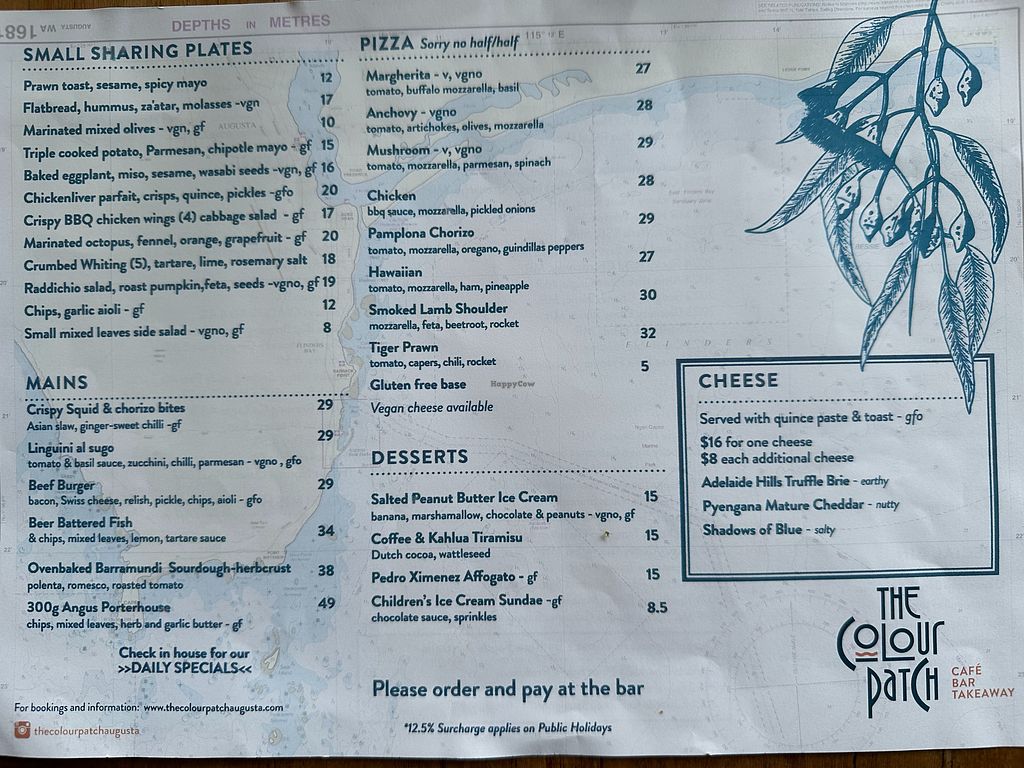 1681 WA AUGUSTA
DEPTHS IN METRES
115° 13' E
SMALL SHARING PLATES
Prawn toast, sesame, spicy mayo 12
Flatbread, hummus, za'atar, molasses -vgn 17
Marinated mixed olives - vgn, gf 10
Triple cooked potato, Parmesan, chipotle mayo - gf 15
Baked eggplant, miso, sesame, wasabi seeds -vgn, gf 16
Chickenliver parfait, crisps, quince, pickles -gfo 20
Crispy BBQ chicken wings (4) cabbage salad - gf 17
Marinated octopus, fennel, orange, grapefruit - gf 20
Crumbed Whiting (5), tartare, lime, rosemary salt 18
Raddichio salad, roast pumpkin,feta, seeds -vgno, gf 19
Chips, garlic aioli - gf 12
Small mixed leaves side salad - vgno, gf 8
MAINS
Crispy Squid & chorizo bites 29
Asian slaw, ginger-sweet chilli -gf
Linguini al sugo 29
tomato & basil sauce, zucchini, chilli, parmesan - vgno , gfo
Beef Burger 29
bacon, Swiss cheese, relish, pickle, chips, aioli - gfo
Beer Battered Fish
& chips, mixed leaves, lemon, tartare sauce 34
Ovenbaked Barramundi Sourdough-herbcrust 38
polenta, romesco, roasted tomato
300g Angus Porterhouse 49
chips, mixed leaves, herb and garlic butter - gf
Check in house for our
>>DAILY SPECIALS<<
For bookings and information: www.thecolourpatchaugusta.com
thecolourpatchaugusta
PIZZA Sorry no half/half
Margherita - v, vgno 27
tomato, buffalo mozzarella, basil
Anchovy - vgno 28
tomato, artichokes, olives, mozzarella
Mushroom - v, vgno 29
tomato, mozzarella, parmesan, spinach
Chicken 28
bbq sauce, mozzarella, pickled onions
Pamplona Chorizo 29
tomato, mozzarella, oregano, guindillas peppers
Hawaiian 27
tomato, mozzarella, ham, pineapple
Smoked Lamb Shoulder 30
mozzarella, feta, beetroot, rocket
Tiger Prawn 32
tomato, capers, chili, rocket
Gluten free base 5
HappyCow
Vegan cheese available
DESSERTS
Salted Peanut Butter Ice Cream 15
banana, marshamallow, chocolate & peanuts - vgno, gf
Coffee & Kahlua Tiramisu 15
Dutch cocoa, wattleseed
Pedro Ximenez Affogato - gf 15
Children's Ice Cream Sundae -gf 8.5
chocolate sauce, sprinkles
Please order and pay at the bar
*12.5% Surcharge applies on Public Holidays
FLINDERS
CHEESE
Served with quince paste & toast - gfo
$16 for one cheese
$8 each additional cheese
Adelaide Hills Truffle Brie - earthy
Pyengana Mature Cheddar - nutty
Shadows of Blue - salty
THE
COLOUR
PATCH
CAFÉ
BAR
TAKEAWAY